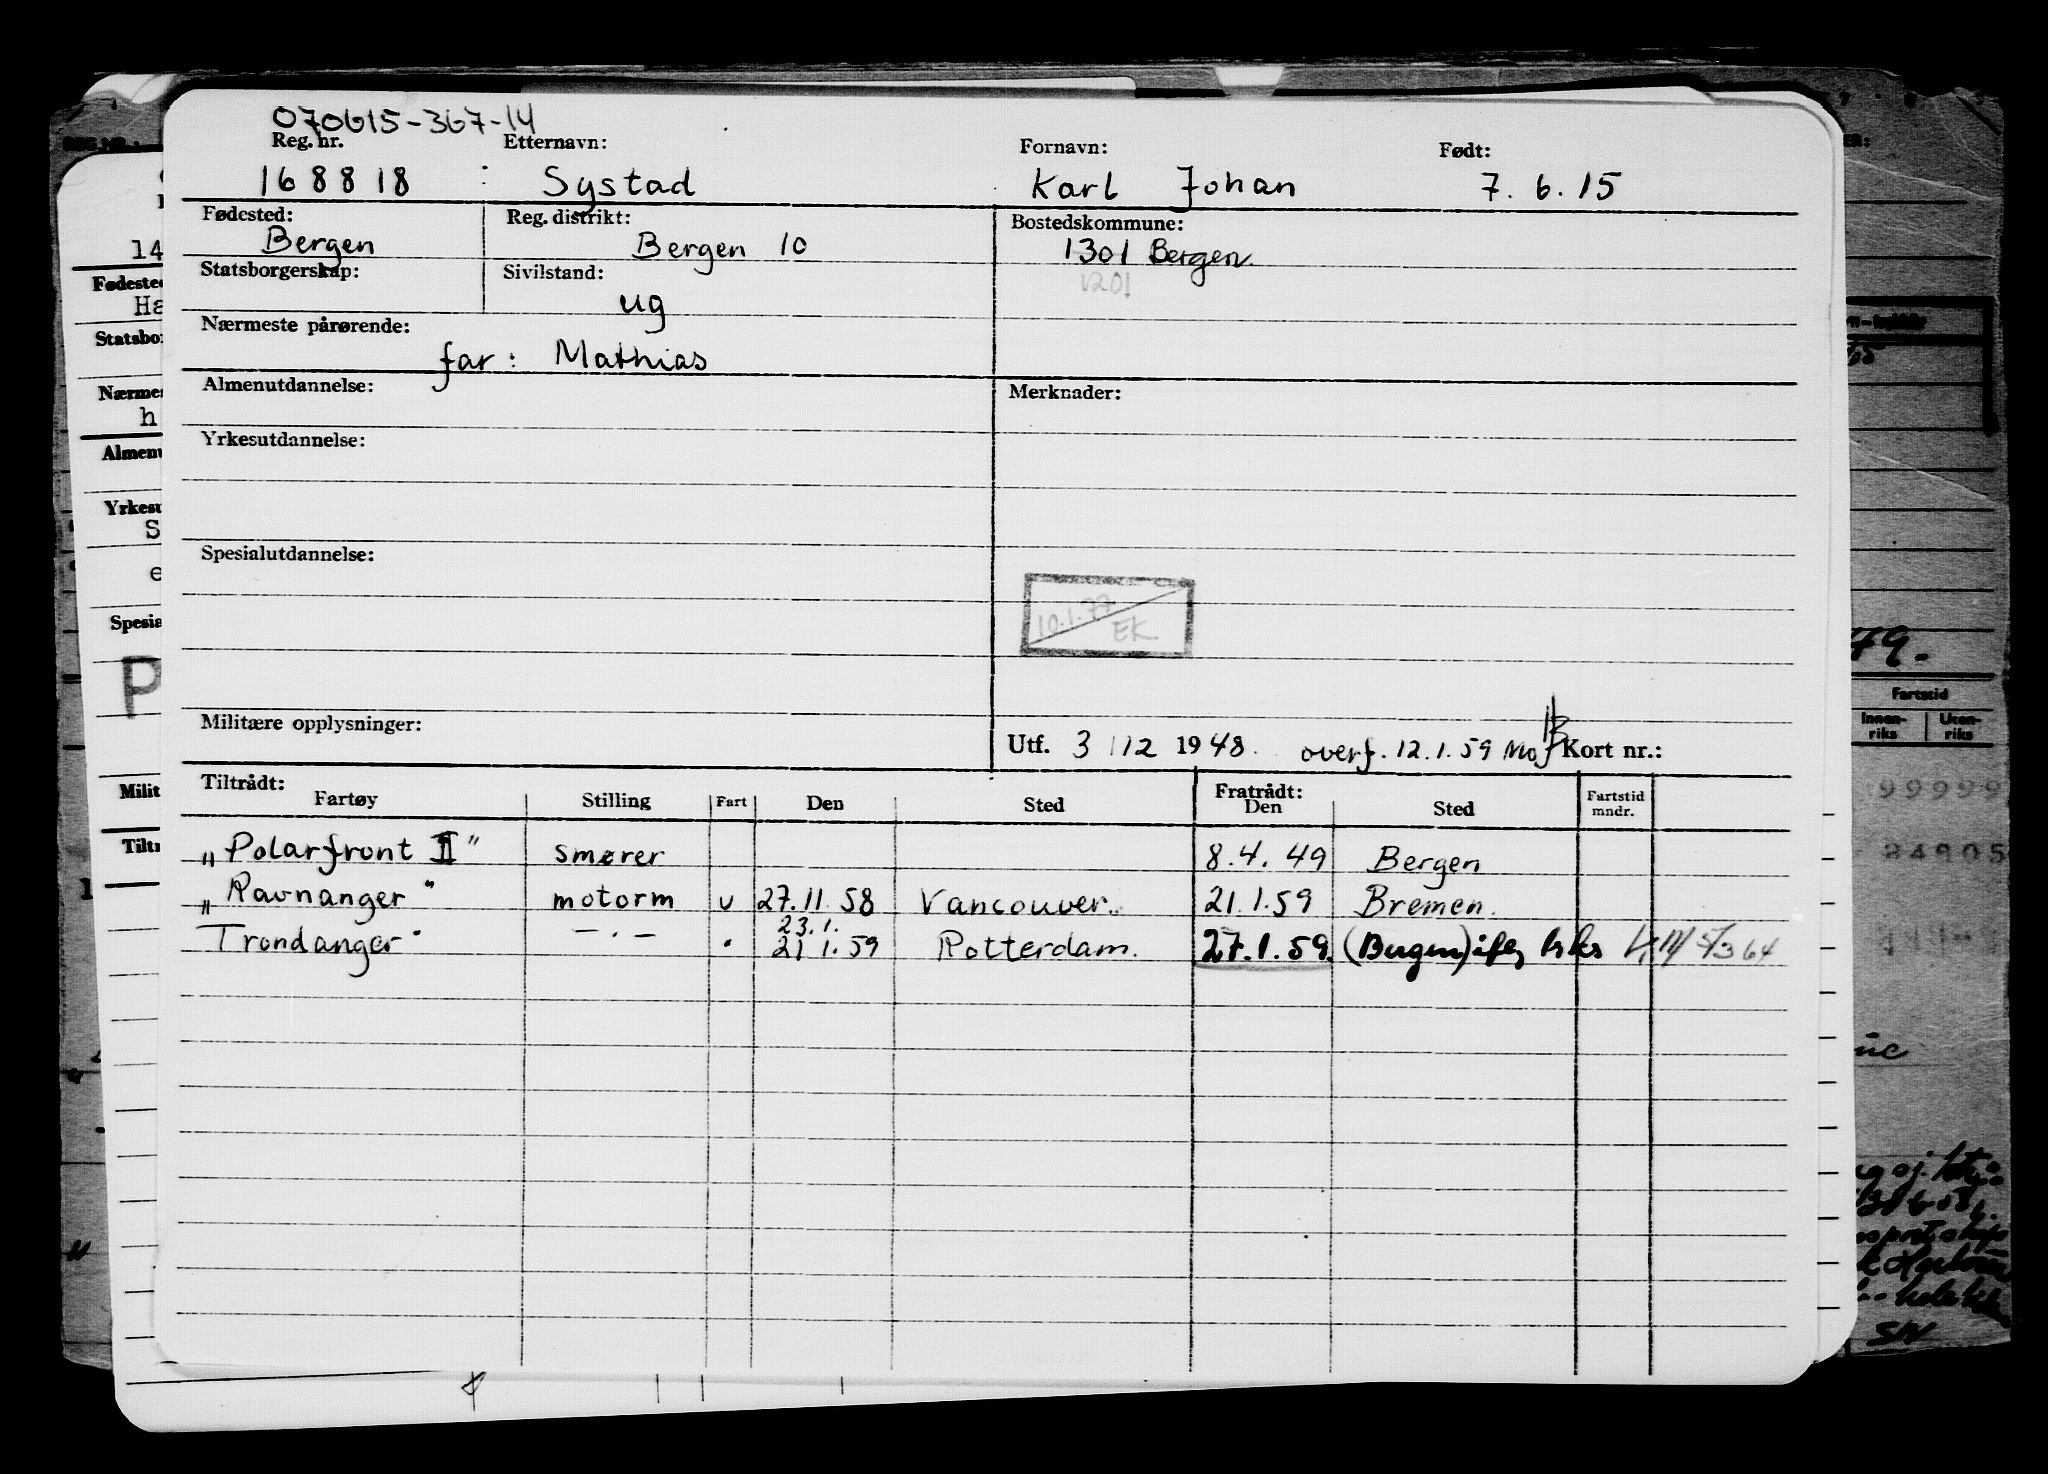 070615-367-14
Reg. nr. Etternavn: Fornavn: Født:
168818 Systad Karl Johan 7. 6. 15
Fødested: Reg. distrikt: Bostedskommune:
Bergen Bergen 10 1301 Bergen
Statsborgerskap: Sivilstand: 1201
ug
Nærmeste pårørende:
far: Mathias
Almenutdannelse: Merknader:
Yrkesutdannelse:
Spesialutdannelse:
10.1.77
EK
Militære opplysninger:
Utf. 3 12 1948. overf. 12.1.59 Kort nr.:
Tiltrådt: Fratrådt: Fartstid
Fartøy Stilling Fart Den Sted Den Sted mndr.
„Polarfront II" smører 8.4.49 Bergen
„Ravnanger" motorm u 27.11.58 Vancouver. 21.1.59 Bremen.
23.1.
Trondanger" —.— " 21 1.59 Rotterdam. 27.1.59. (Bergen) 5/3 64
14
Fødeste
Ha
Statsbor
Nærmes
h
Almenu
Yrkesu
S
e
Spesia
P
Milit
Tiltr
49.
Fartstid
Innen-
riks
Uten-
riks
99999
84905
SN